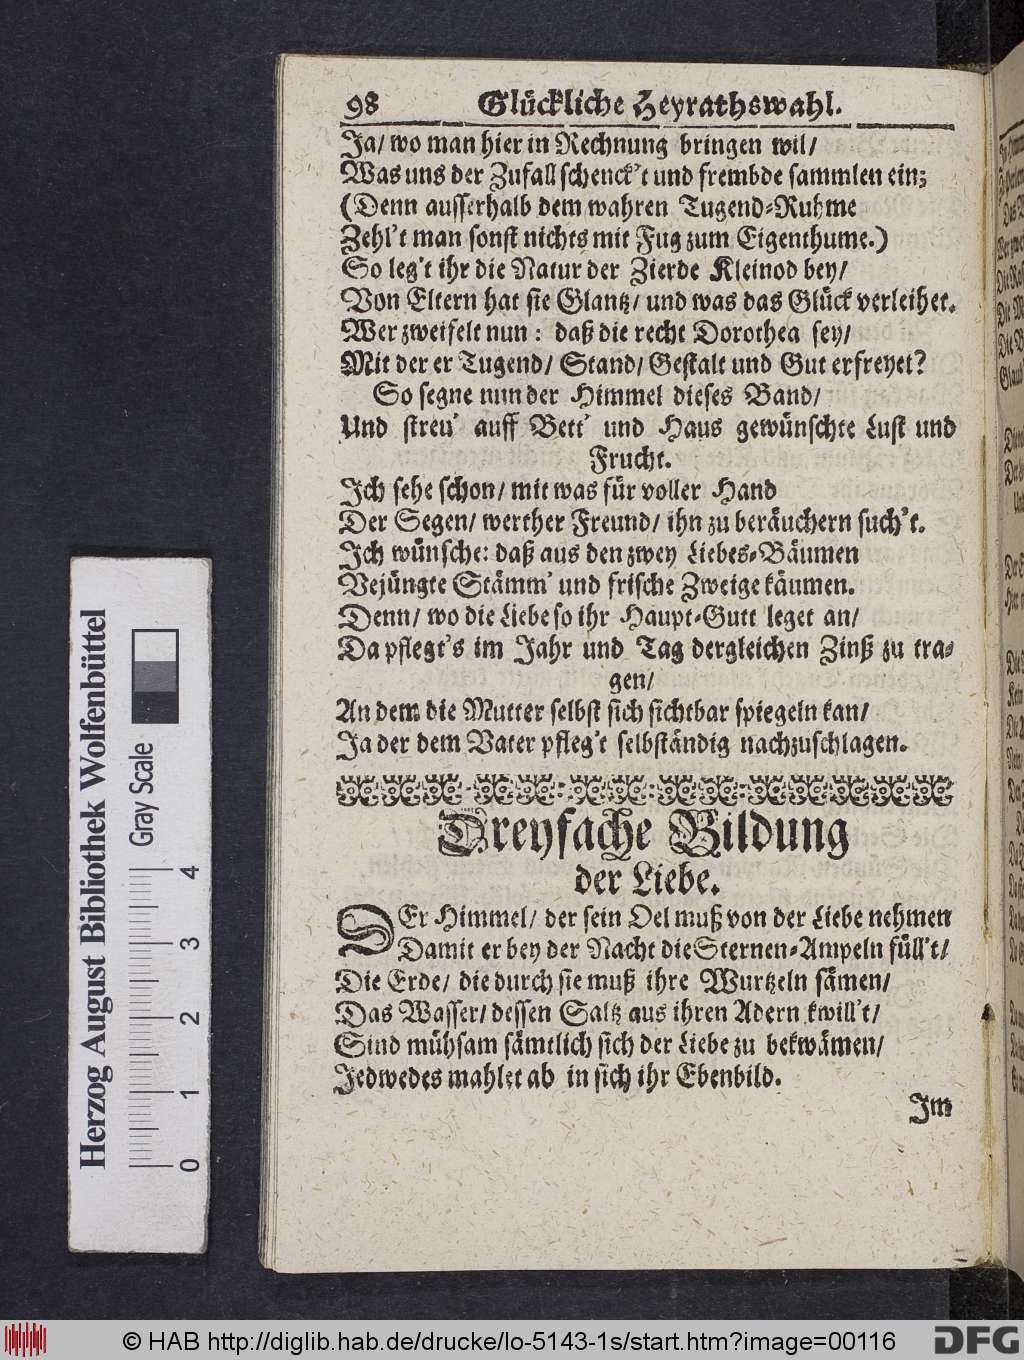 98 Glückliche Heyrathswahl.
Ja/ wo man hier in Rechnung bringen wil/
Was uns der Zufall schenck't und frembde sammlen ein;
(Denn ausserhalb dem wahren Tugend-Ruhme
Zehl't man sonst nichts mit Fug zum Eigenthume.)
So leg't ihr die Natur der Zierde Kleinod bey/
Von Eltern hat sie Glantz/ und was das Glück verleihet.
Wer zweifelt nun: daß die recht Dorothea sey/
Mit der er Tugend/ Stand/ Gestalt und Gut erfreyet?
So segne nun der Himmel dieses Band/
Und streu' auff Bett' und Haus gewünschte Lust und
Frucht.
Ich sehe schon/ mit was für voller Hand
Der Segen/ werther Freund/ ihn zu beräuchern such't.
Ich wünsche: daß aus den zwey Liebes-Bäumen
Vejüngte Stämm' und frische Zweige käumen.
Denn/ wo die Liebe so ihr Haupt-Gutt leget an/
Da pflegt's im Jahr und Tag dergleichen Zinß zu tra-
gen/
An dem die Mutter selbst sich sichtbar spiegeln kan/
Ja der dem Vater pfleg't selbständig nachzuschlagen.
Dreyfache Bildung
der Liebe.
DEr Himmel/ der sein Oel muß von der Liebe nehmen
Damit er bey der Nacht die Sternen-Ampeln füll't/
Die Erde/ die durch sie muß ihre Wurtzeln sämen/
Das Wasser/ dessen Saltz aus ihren Adern kwill't/
Sind mühsam sämtlich sich der Liebe zu bekwämen/
Jedwedes mahlet ab in sich ihr Ebenbild.
Im
Herzog August Bibliothek Wolfenbüttel
Gray Scale
0 1 2 3 4
© HAB http://diglib.hab.de/drucke/lo-5143-1s/start.htm?image=00116
DFG